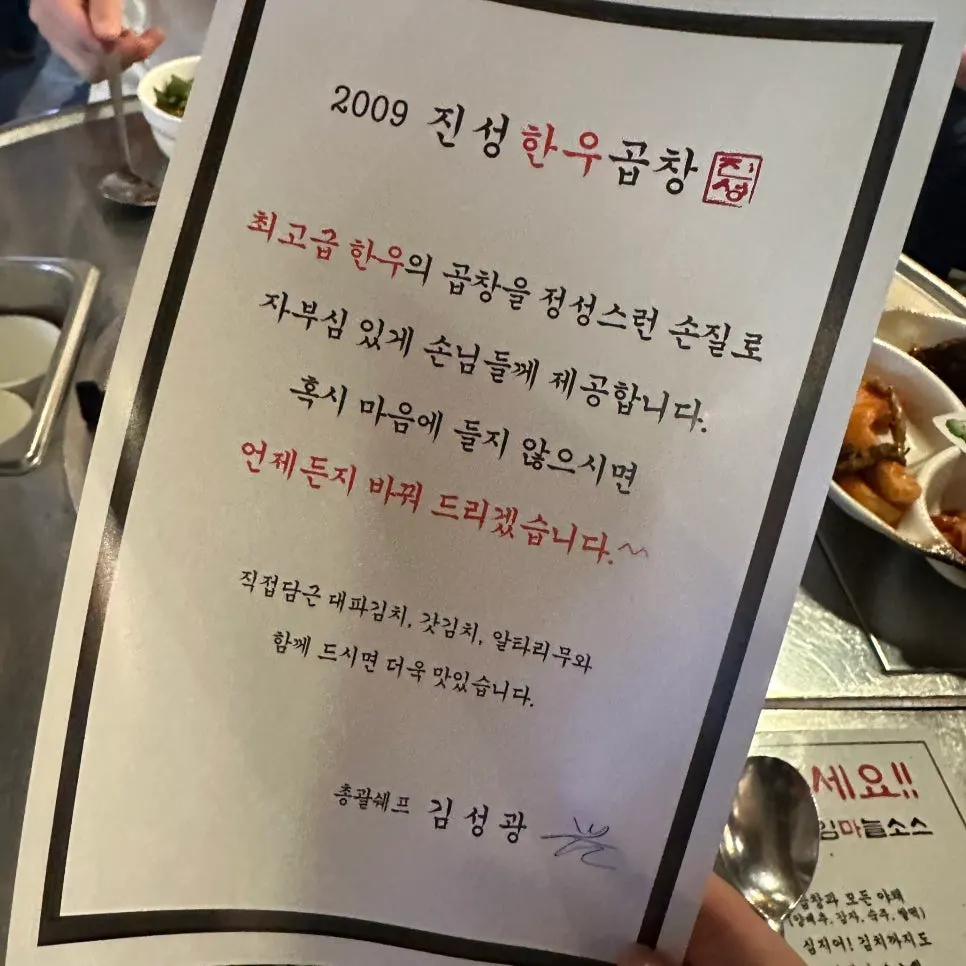 2009 진성한우곱창 진성
최고급 한우의 곱창을 정성스런 손질로
자부심 있게 손님들께 제공합니다.
혹시 마음에 들지 않으시면
언제든지 바꿔 드리겠습니다.~
직접담근 대파김치, 갓김치, 알타리무와
함께 드시면 더욱 맛있습니다.
총괄쉐프 김성광
세요!!
마늘소스
모든 야채
(양배추, 감자, 숙주, 팽이)
심지어! 김치까지도